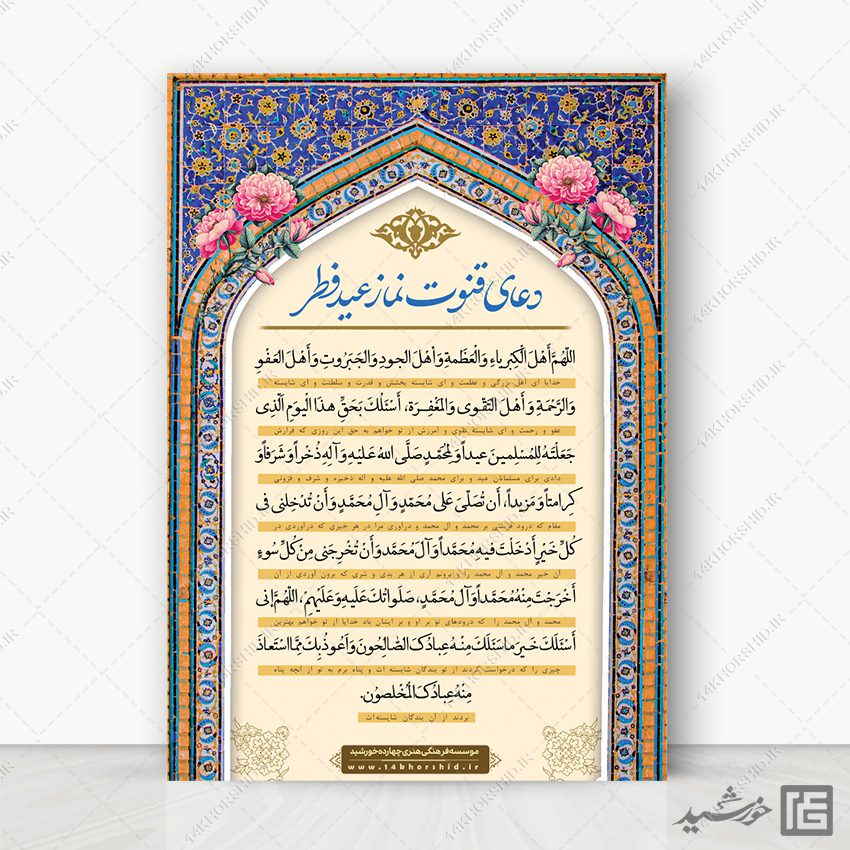 دعای قنوت نماز عید فطر
اللّهُمَّ أَهْلَ الْكِبْرِياءِ وَالْعَظَمَةِ وَأَهْلَ الْجودِ وَالْجَبَروتِ وَأَهْلَ الْعَفْوِ
خدایا ای اهل بزرگی و عظمت و ای شایسته بخشش و قدرت و سلطنت و ای شایسته
وَالرَّحْمَةِ وَأَهْلَ التَّقْوى وَالْمَغْفِرَةِ، أَسْئَلُكَ بِحَقِّ هذَا الْيَومِ الَّذِى
عفو و رحمت و ای شایسته تقوی و آمرزش از تو خواهم به حق این روزی که قرارش
جَعَلْتَهُ لِلْمُسْلِمينَ عيداً وَلِمُحَمَّدٍ صَلَّى اللهُ عَلَيهِ وَآلِهِ ذُخْراً وَشَرَفاً وَ
دادی برای مسلمانان عید و برای محمد صلی الله علیه و آله ذخیره و شرف و فزونی
كِرامتاً وَمَزيداً، أَن تُصَلّىَ عَلى مُحَمّدٍ وَآلِ مُحَمَّدٍ وَأَنْ تُدْخِلَنى فى
مقام که درود فرستی بر محمد و آل محمد و درآوری مرا در هر خیری که درآوردی در
كُلِّ خَيرٍ أَدْخَلْتَ فيهِ مُحَمَّداً وَآلَ مُحَمَّد وَأَنْ تُخْرِجَنى مِنْ كُلِّ سُوءٍ
آن خیر محمد و آل محمد را و برونم آری از هر بدی و شری که برون آوردی از آن
أَخرَجْتَ مِنْهُ مُحَمَّداً وَآلَ مُحَمَّدٍ، صَلَواتُكَ عَلَيهِ وَعَلَيهِمْ، اللّهُمَّ إِنى
محمد و آل محمد را که درودهای تو بر او و بر ایشان باد خدایا از تو خواهم بهترین
أَسْئَلُكَ خَيرَ ما سَئَلَكَ مِنْهُ عِبادُكَ الصّالِحُونَ وَأَعُوذُ بِكَ مِمَّا اسْتَعاذَ
چیزی را که درخواست کردند از تو بندگان شایسته ات و پناه برم به تو از آنچه پناه
مِنْهُ عِبادُكَ الْمُخْلَصُونَ.
بردند از آن بندگان شایسته‌ات
موسسه فرهنگی هنری چهارده خورشید
www.14khorshid.ir
خورشید
14KHORSHID.IR